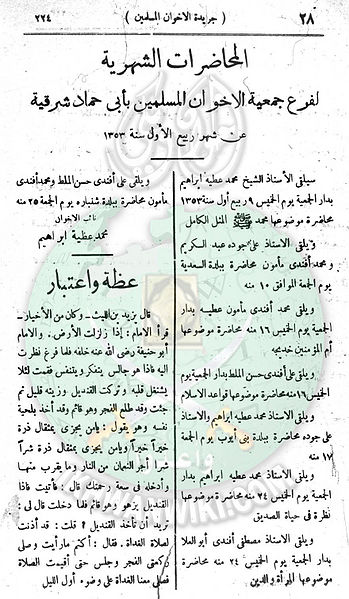 ٢٨
( جريدة الاخوان المسلمين )
٢٢٤
المحاضرات الشهرية
لفرع جمعية الاخوان المسلمين بأبي حماد شرقية
عن شهر ربيع الأول سنة ١٣٥٣
سيلقي الأستاذ الشيخ محمد عطيه ابراهيم
بدار الجمعية يوم الخميس ٩ ربيع أول سنة ١٣٥٣
محاضرة موضوعها محمد ﷺ المثل الكامل
ويلقي الاستاذ على جوده عبد الكريم
ومحمد أفندى مأمون محاضرة ببلدة السعدية
يوم الجمعة الموافق ١٠ منه
ويلقي محمد أفندى مأمون عطيه بدار
الجمعية يوم الخميس ١٦ منه محاضرة موضوعها
أم المؤمنين خديجه
ويلقي على أفندى حسن الملط بدار الجمعية يوم
الخميس ١٦ منه محاضرة موضوعها قواعد الاسلام
ويلقي الاستاذ محمد عطيه ابراهيم والاستاذ
على جوده محاضرة ببلدة بنى أيوب يوم الجمعة
١٧ منه
ويلقي الاستاذ محمد عطيه ابراهيم بدار
الجمعية يوم الخميس ٢٤ منه محاضرة موضوعها
نظرة فى حياة الصديق
ويلقي الاستاذ مصطفى أفندى أبو العلا
بدار الجمعية يوم الخميس ٢٤ منه محاضرة
موضوعها المرأة والدين
ويلقي على أفندى حسن الملط ومحمد أفندى
مأمون محاضرة ببلدة شنباره يوم الجمعة ٢٥ منه
نائب الاخوان
محمد عطية ابراهيم
عظة واعتبار
قال يزيد بن الليث — وكان من الأخيار —
قرأ الامام : إذا زلزلت الأرض . والامام
أبو حنيفة رضى الله عنه خلفه فلما فرغ نظرت
اليه فاذا هو جالس يتفكر ويتنفس فقمت لئلا
يشتغل قلبه وتركت القنديل وزيته قليل ثم
جئت وقد طلع الفجر وهو قائم وقد أخذ بلحية
نفسه وهو يقول : يامن يجزى بمثقال ذرة
خيراً خيراً ويامن يجزى بمثقال ذرة شراً
شراً أجر النعمان من النار وما يقرب منها
وأدخله فى سعة رحمتك قال : فأتيت فاذا
القنديل يزهو وهو قائم فلما دخلت قال لى :
تريد أن تأخذ القنديل ؟ قلت : قد أذنت
لصلاة الغداة . فقال : أكتم مارأيت وصلى
ركعتى الفجر وجلس حتى أقيمت الصلاة
فصلى معنا الغداة على وضوء أول الليل